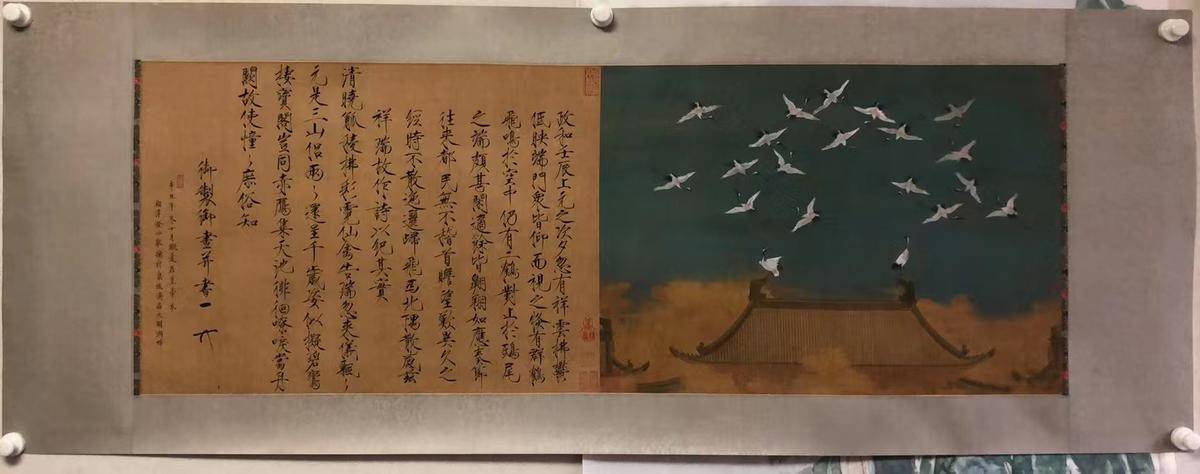 政和壬辰上元之次夕忽有祥雲拂鬱
低映端門眾皆仰而視之倏有群鶴
飛鳴於空中仍有二鶴對止於鴟尾
之端頗甚閒適餘皆翱翔如應奏節
往來都民無不稽首瞻望歎異久之
經時不散迤邐歸飛西北隅散感茲
祥瑞故作詩以紀其實
清曉觚稜拂彩霓仙禽告瑞忽來儀飄々
元是三山侶兩々還呈千歲姿似擬碧鸞
棲寶閣豈同赤鴈集天池徘徊嘹唳當丹
闕故使憧々庶俗知
御製御畫并書